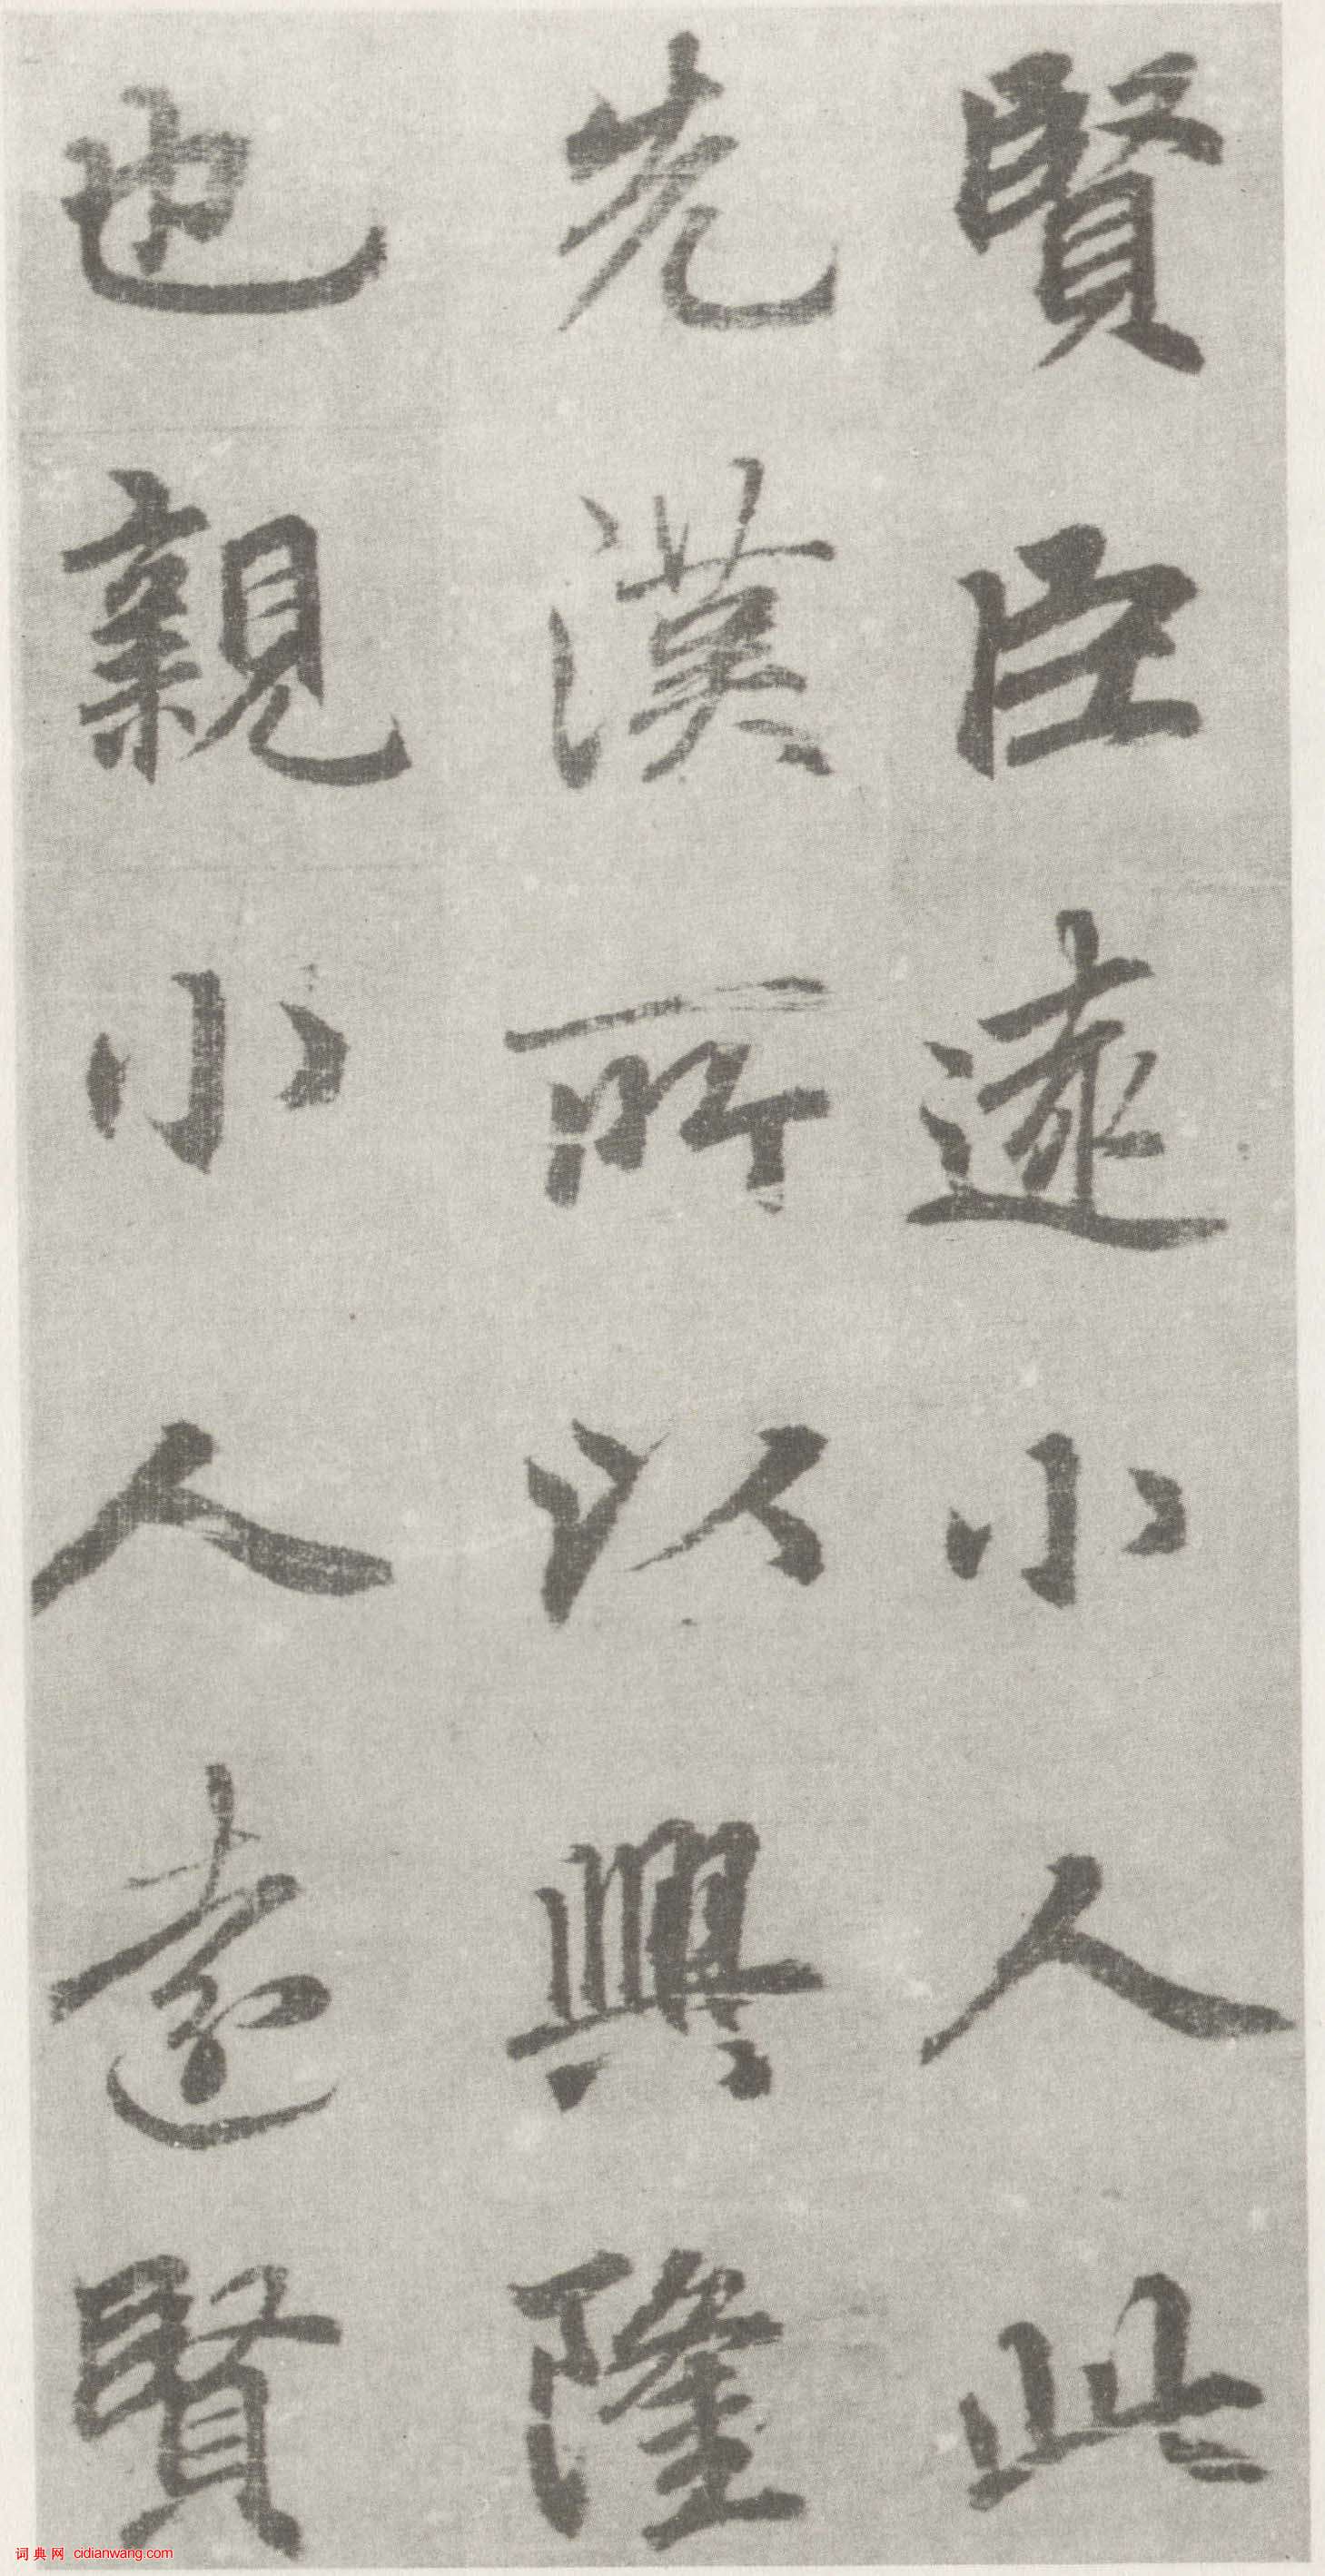 賢臣遠小人此
先漢所以興隆
也親小人遠賢
词典网 cidianwang.com